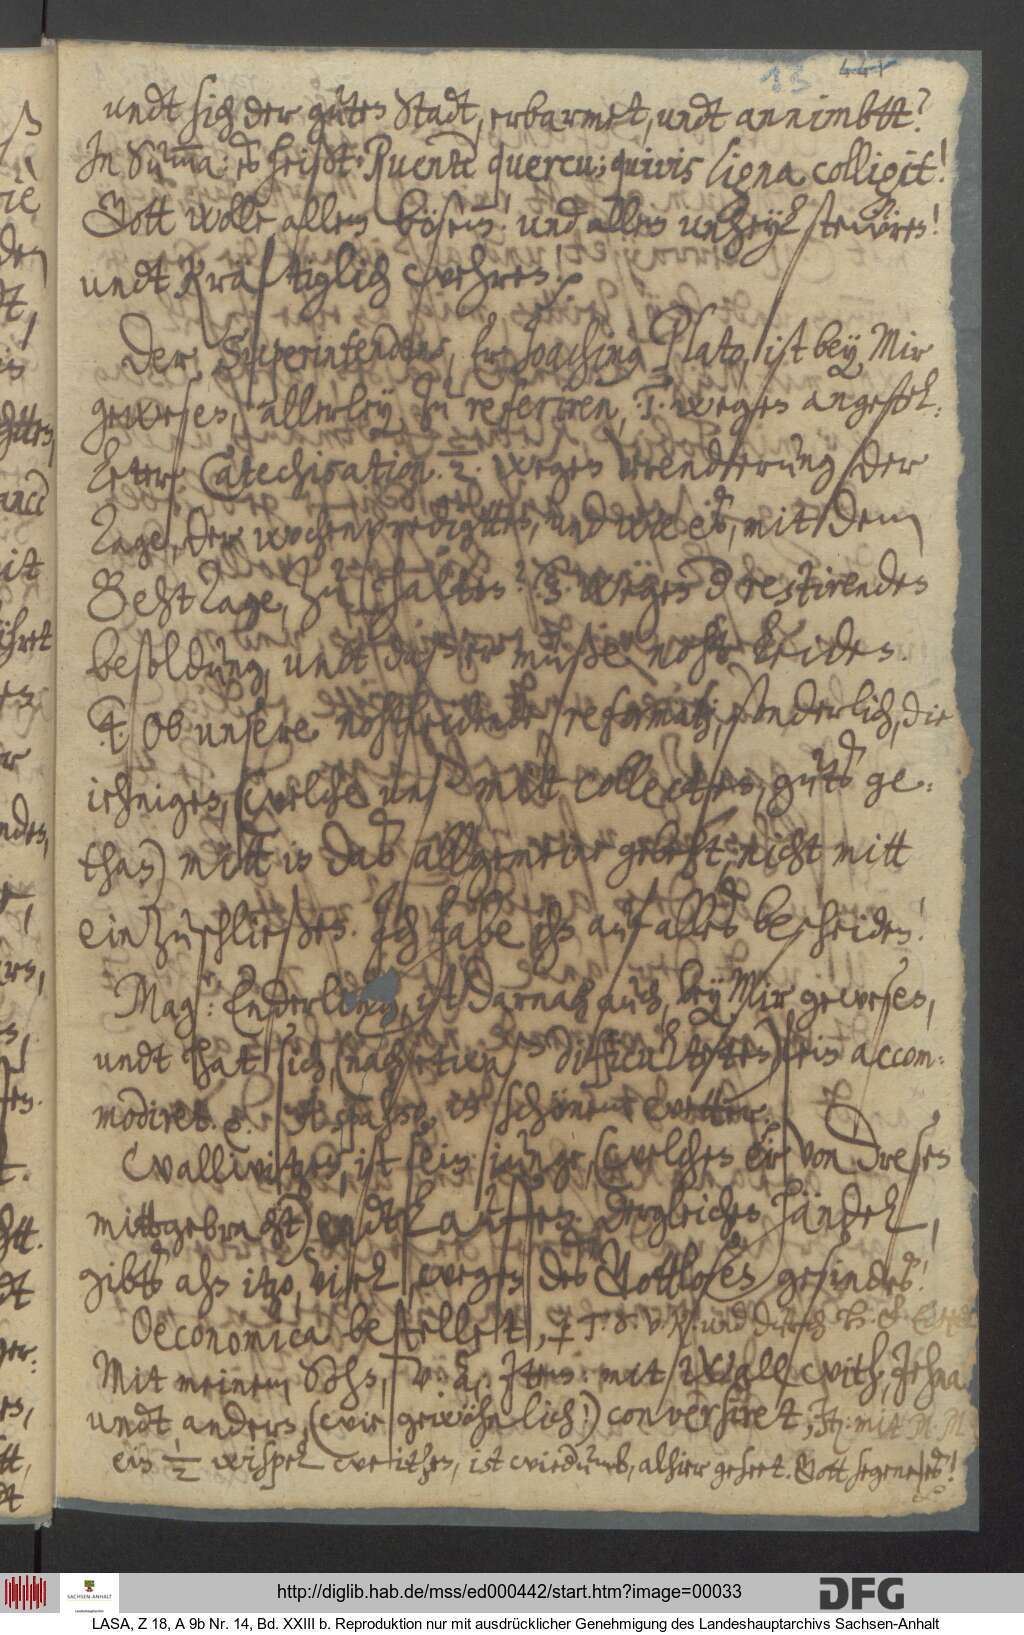 13 441
undt sich der guten Stadt, erbarmet, undt annimbtt?
In Summa: es heißt: Ruente quercu, quivis ligna colligit!
Gott wolle allem bösem und allem unheyl stewren!
undt Kräftiglich wehren!
Der Superintendens, Er Joachimg Plato, ist bey Mir
gewesen, allerley zu referiren, 1. wegen angestel-
leter Catechisation. 2. wegen verenderung der
Tage, der wochenpredigtten, und wie es, mit dem
Behttage, zu halten? 3. Wegen der restirenden
besoldung, undt daß er müße noht leiden.
4. Ob unsere nohtleidende reformati, sonderlich, die
iehnigen, (welche unß mitt collecten, guts ge-
than) mitt in das allgemeine gebeht, nicht mitt
ein zu schließen. Ich habe ihn auf alles bescheiden!
Mag: Enderling, ist darnach auch, bey Mir gewesen,
undt hat sich, (nach etzlichen difficulteten) fein accom-
modiret. in schönem wetter.
Wallwitzen, ist sein junge, (welchen er von Dresen
mittgebracht) endtlauffen. Dergleichen händel,
gibts ahn itzo, viel, wegen des Gottlosen gesindes!
Oeconomica bestellett, und durch
Mit meinem Sohn, Item: mit Wallwitz, Jehna
undt anders, (wie gewöhnlich!) conversiret, It: mit M. M.
ein 1/2 wispel weitzen, ist wiederumb, alhier geseet. Gott segene es!
http://diglib.hab.de/mss/ed000442/start.htm?image=00033
SACHSEN-ANHALT
DFG
LASA, Z 18, A 9b Nr. 14, Bd. XXIII b. Reproduktion nur mit ausdrücklicher Genehmigung des Landeshauptarchivs Sachsen-Anhalt